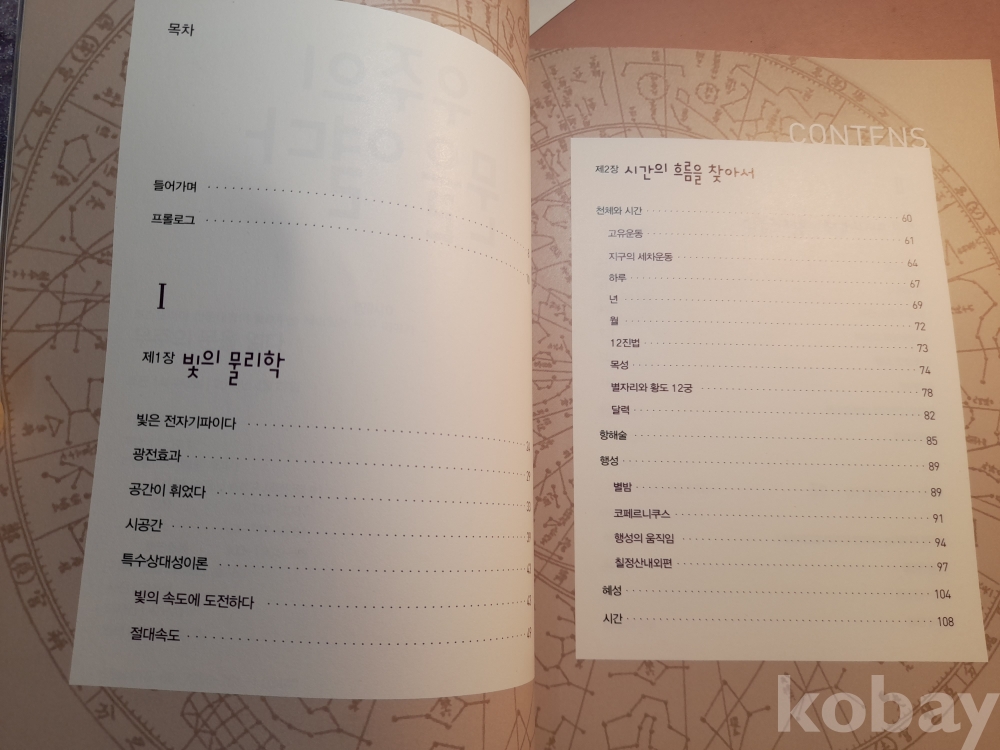 목차
들어가며
프롤로그
I
제1장 빛의 물리학
빛은 전자기파이다 24
광전효과 29
공간이 휘었다 33
시공간 39
특수상대성이론
빛의 속도에 도전하다
절대속도
CONTENS
제2장 시간의 흐름을 찾아서
천체와 시간 60
고유운동 61
지구의 세차운동 64
하루 67
년 69
월 72
12진법 73
목성 74
별자리와 황도 12궁 78
달력 82
항해술 85
행성 89
별밤 89
코페르니쿠스 91
행성의 움직임 94
칠정산내외편 97
혜성 104
시간 108
kobay